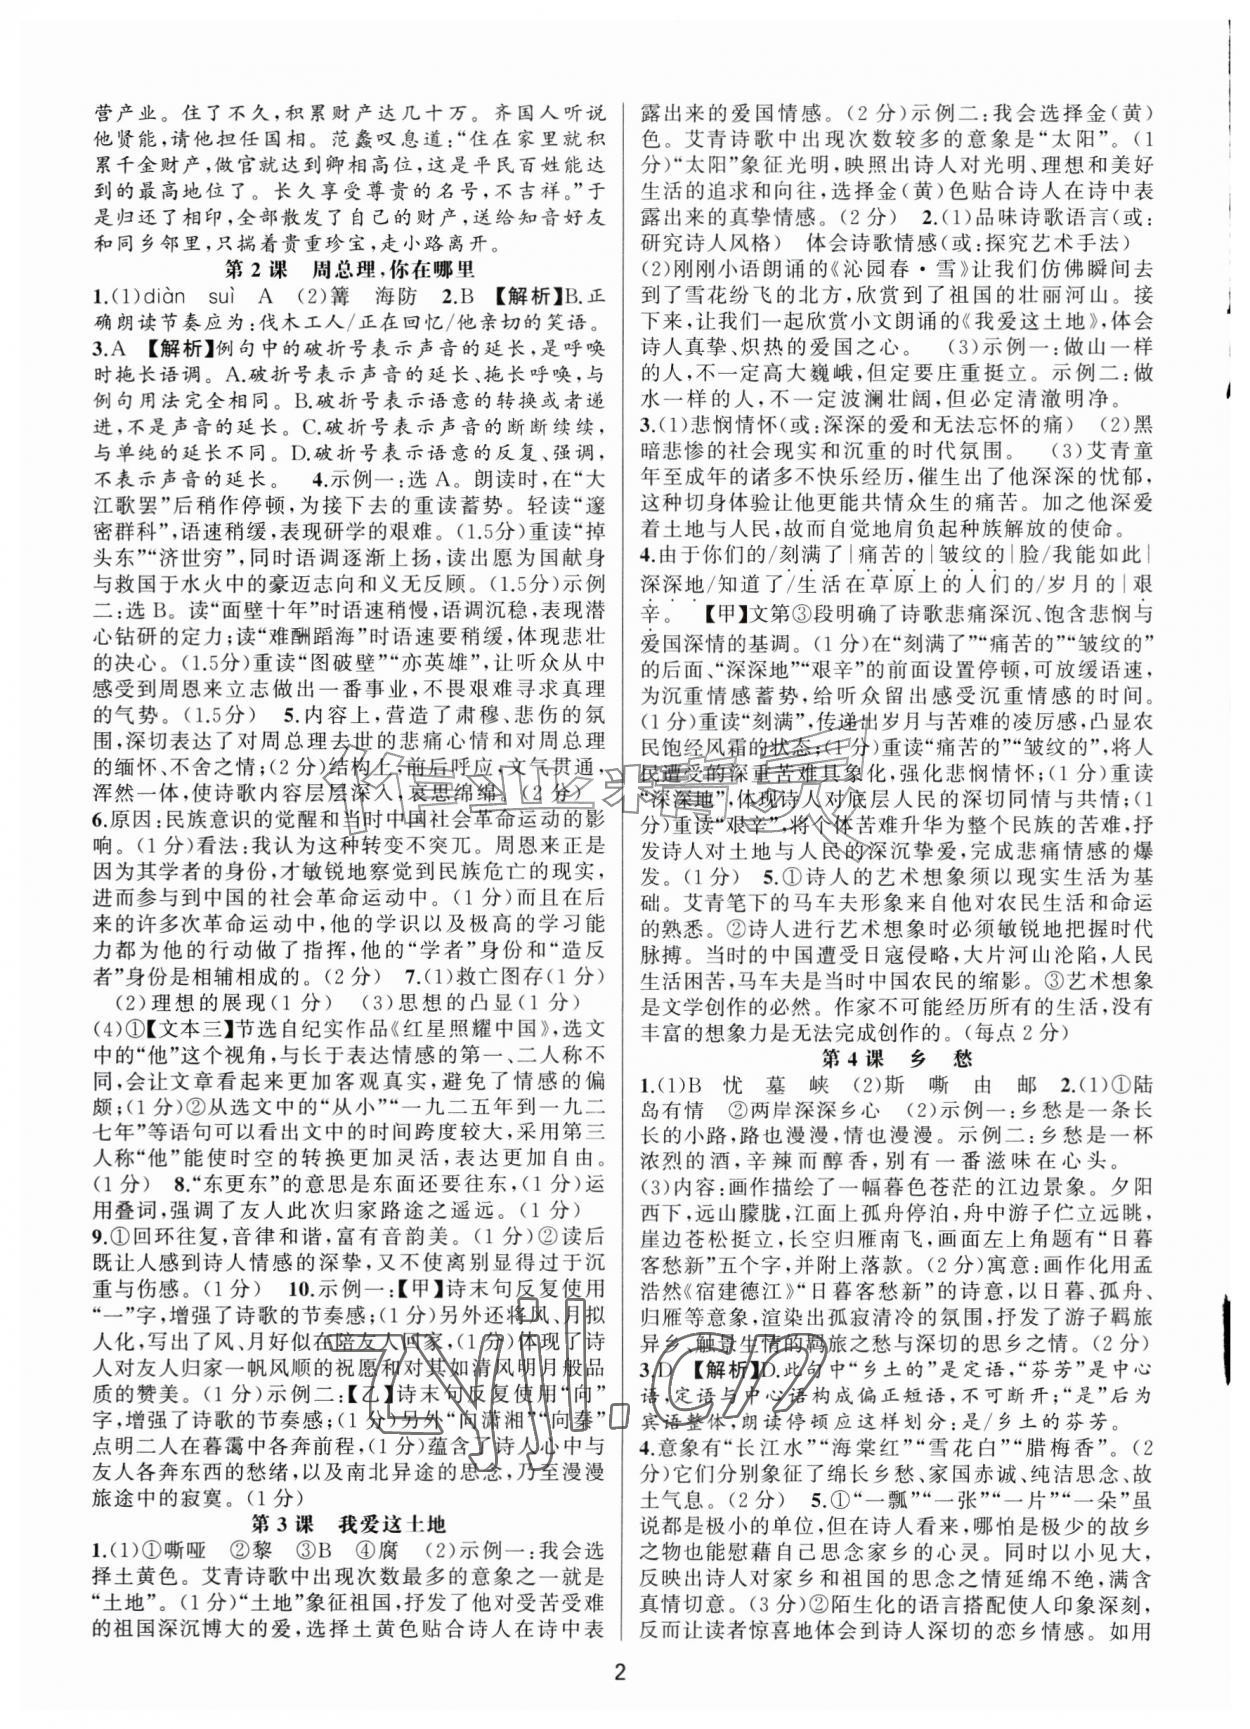 营产业。住了不久,积累财产达几十万。齐国人听说
他贤能,请他担任国相。范蠡叹息道:“住在家里就积
累千金财产,做官就达到卿相高位,这是平民百姓能达
到的最高地位了。长久享受尊贵的名号,不吉祥。”于
是归还了相印,全部散发了自己的财产,送给知音好友
和同乡邻里,只揣着贵重珍宝,走小路离开。
第2课 周总理,你在哪里
1.(1)diàn suì A (2)篝 海防 2.B 【解析】B.正
确朗读节奏应为:伐木工人/正在回忆/他亲切的笑语。
3.A 【解析】例句中的破折号表示声音的延长,是呼唤
时拖长语调。A.破折号表示声音的延长、拖长呼唤,与
例句用法完全相同。B.破折号表示语意的转换或者递
进,不是声音的延长。C.破折号表示声音的断断续续,
与单纯的延长不同。D.破折号表示语意的反复、强调,
不表示声音的延长。 4.示例一:选A。朗读时,在“大
江歌罢”后稍作停顿,为接下去的重读蓄势。轻读“邃
密群科”,语速稍缓,表现研学的艰难。(1.5分)重读“掉
头东”“济世穷”,同时语调逐渐上扬,读出愿为国献身
与救国于水火中的豪迈志向和义无反顾。(1.5分)示例
二:选B。读“面壁十年”时语速稍慢,语调沉稳,表现潜
心钻研的定力;读“难酬蹈海”时语速要稍缓,体现悲壮
的决心。(1.5分)重读“图破壁”“亦英雄”,让听众从中
感受到周恩来立志做出一番事业,不畏艰难寻求真理
的气势。(1.5分) 5.内容上,营造了肃穆、悲伤的氛
围,深切表达了对周总理去世的悲痛心情和对周总理
的缅怀、不舍之情;(2分)结构上,前后呼应,文气贯通,
浑然一体,使诗歌内容层层深入,哀思绵绵。(2分)
6.原因:民族意识的觉醒和当时中国社会革命运动的影
响。(1分)看法:我认为这种转变不突兀。周恩来正是
因为其学者的身份,才敏锐地察觉到民族危亡的现实,
进而参与到中国的社会革命运动中。(1分)而且在后
来的许多次革命运动中,他的学识以及极高的学习能
力都为他的行动做了指挥,他的“学者”身份和“造反
者”身份是相辅相成的。(2分) 7.(1)救亡图存(1分)
(2)理想的展现(1分) (3)思想的凸显(1分)
(4)①【文本三】节选自纪实作品《红星照耀中国》,选文
中的“他”这个视角,与长于表达情感的第一、二人称不
同,会让文章看起来更加客观真实,避免了情感的偏
颇;(1分)②从选文中的“从小”“一九二五年到一九二
七年”等语句可以看出文中的时间跨度较大,采用第三
人称“他”能使时空的转换更加灵活,表达更加自由。
(1分) 8.“东更东”的意思是东面还要往东,(1分)运
用叠词,强调了友人此次归家路途之遥远。(1分)
9.①回环往复,音律和谐,富有音韵美。(1分)②读后
既让人感到诗人情感的深挚,又不使离别显得过于沉
重与伤感。(1分) 10.示例一:【甲】诗末句反复使用
“一”字,增强了诗歌的节奏感;(1分)另外还将风、月拟
人化,写出了风、月好似在陪友人回家,(1分)体现了诗
人对友人归家一帆风顺的祝愿和对其如清风明月般品
质的赞美。(1分)示例二:【乙】诗末句反复使用“向”
字,增强了诗歌的节奏感;(1分)另外“向潇湘”“向秦”
点明二人在暮霭中各奔前程,(1分)蕴含了诗人心中与
友人各奔东西的愁绪,以及南北异途的思念,乃至漫漫
旅途中的寂寞。(1分)
第3课 我爱这土地
1.(1)①嘶哑 ②黎 ③B ④腐 (2)示例一:我会选
择土黄色。艾青诗歌中出现次数最多的意象之一就是
“土地”。(1分)“土地”象征祖国,抒发了他对受苦受难
的祖国深沉博大的爱,选择土黄色贴合诗人在诗中表
露出来的爱国情感。(2分)示例二:我会选择金(黄)
色。艾青诗歌中出现次数较多的意象是“太阳”。(1
分)“太阳”象征光明,映照出诗人对光明、理想和美好
生活的追求和向往,选择金(黄)色贴合诗人在诗中表
露出来的真挚情感。(2分) 2.(1)品味诗歌语言(或:
研究诗人风格) 体会诗歌情感(或:探究艺术手法)
(2)刚刚小语朗诵的《沁园春·雪》让我们仿佛瞬间去
到了雪花纷飞的北方,欣赏到了祖国的壮丽河山。接
下来,让我们一起欣赏小文朗诵的《我爱这土地》,体会
诗人真挚、炽热的爱国之心。 (3)示例一:做山一样
的人,不一定高大巍峨,但定要庄重挺立。示例二:做
水一样的人,不一定波澜壮阔,但必定清澈明净。
3.(1)悲悯情怀(或:深深的爱和无法忘怀的痛) (2)黑
暗悲惨的社会现实和沉重的时代氛围。 (3)艾青童
年至成年的诸多不快乐经历,催生出了他深深的忧郁,
这种切身体验让他更能共情众生的痛苦。加之他深爱
着土地与人民,故而自觉地肩负起种族解放的使命。
4.由于你们的/刻满了|痛苦的|皱纹的|脸/我能如此|
深深地/知道了/生活在草原上的人们的/岁月的|艰
辛。 【甲】文第③段明确了诗歌悲痛深沉、饱含悲悯与
爱国深情的基调。(1分)在“刻满了”“痛苦的”“皱纹的”
的后面、“深深地”“艰辛”的前面设置停顿,可放缓语速,
为沉重情感蓄势,给听众留出感受沉重情感的时间。
(1分)重读“刻满”,传递出岁月与苦难的凌厉感,凸显农
民饱经风霜的状态;(1分)重读“痛苦的”“皱纹的”,将人
民遭受的深重苦难具象化,强化悲悯情怀;(1分)重读
“深深地”,体现诗人对底层人民的深切同情与共情;(1
分)重读“艰辛”,将个体苦难升华为整个民族的苦难,抒
发诗人对土地与人民的深沉挚爱,完成悲痛情感的爆
发。(1分) 5.①诗人的艺术想象须以现实生活为基
础。艾青笔下的马车夫形象来自他对农民生活和命运
的熟悉。②诗人进行艺术想象时必须敏锐地把握时代
脉搏。当时的中国遭受日寇侵略,大片河山沦陷,人民
生活困苦,马车夫是当时中国农民的缩影。③艺术想象
是文学创作的必然。作家不可能经历所有的生活,没有
丰富的想象力是无法完成创作的。(每点2分)
第4课 乡 愁
1.(1)B 忧 墓 峡 (2)斯 嘶 由 邮 2.(1)①陆
岛有情 ②两岸深深乡心 (2)示例一:乡愁是一条长
长的小路,路也漫漫,情也漫漫。示例二:乡愁是一杯
浓烈的酒,辛辣而醇香,别有一番滋味在心头。
(3)内容:画作描绘了一幅暮色苍茫的江边景象。夕阳
西下,远山朦胧,江面上孤舟停泊,舟中游子伫立远眺,
江边苍松挺立,长空归雁南飞,画面左上角题有“日暮
客愁新”五个字,并附上落款。(2分)寓意:画作化用孟
浩然《宿建德江》“日暮客愁新”的诗意,以日暮、孤舟、
归雁等意象,渲染出孤寂清冷的氛围,抒发了游子羁旅
异乡、触景生情的羁旅之愁与深切的思乡之情。(2分)
3.D 【解析】D.此句中“乡土的”是定语,“芬芳”是中心
语,定语与中心语构成偏正短语,不可断开;“是”后为
宾语整体,朗读停顿应这样划分:是/乡土的芬芳。
4.意象有“长江水”“海棠红”“雪花白”“腊梅香”。(2
分)它们分别象征了绵长乡愁、家国赤诚、纯洁思念、故
土气息。(2分) 5.①“一瓢”“一张”“一片”“一朵”虽
说都是极小的单位,但在诗人看来,哪怕是极少的故乡
之物也能慰藉自己思念家乡的心灵。同时以小见大,
反映出诗人对家乡和祖国的思念之情延绵不绝,情感
真情切意。(3分)②陌生化的语言搭配使人印象深刻,
反而让读者惊喜地体会到诗人深切的恋乡情感。如用
2
作业精灵
zyjl.cn